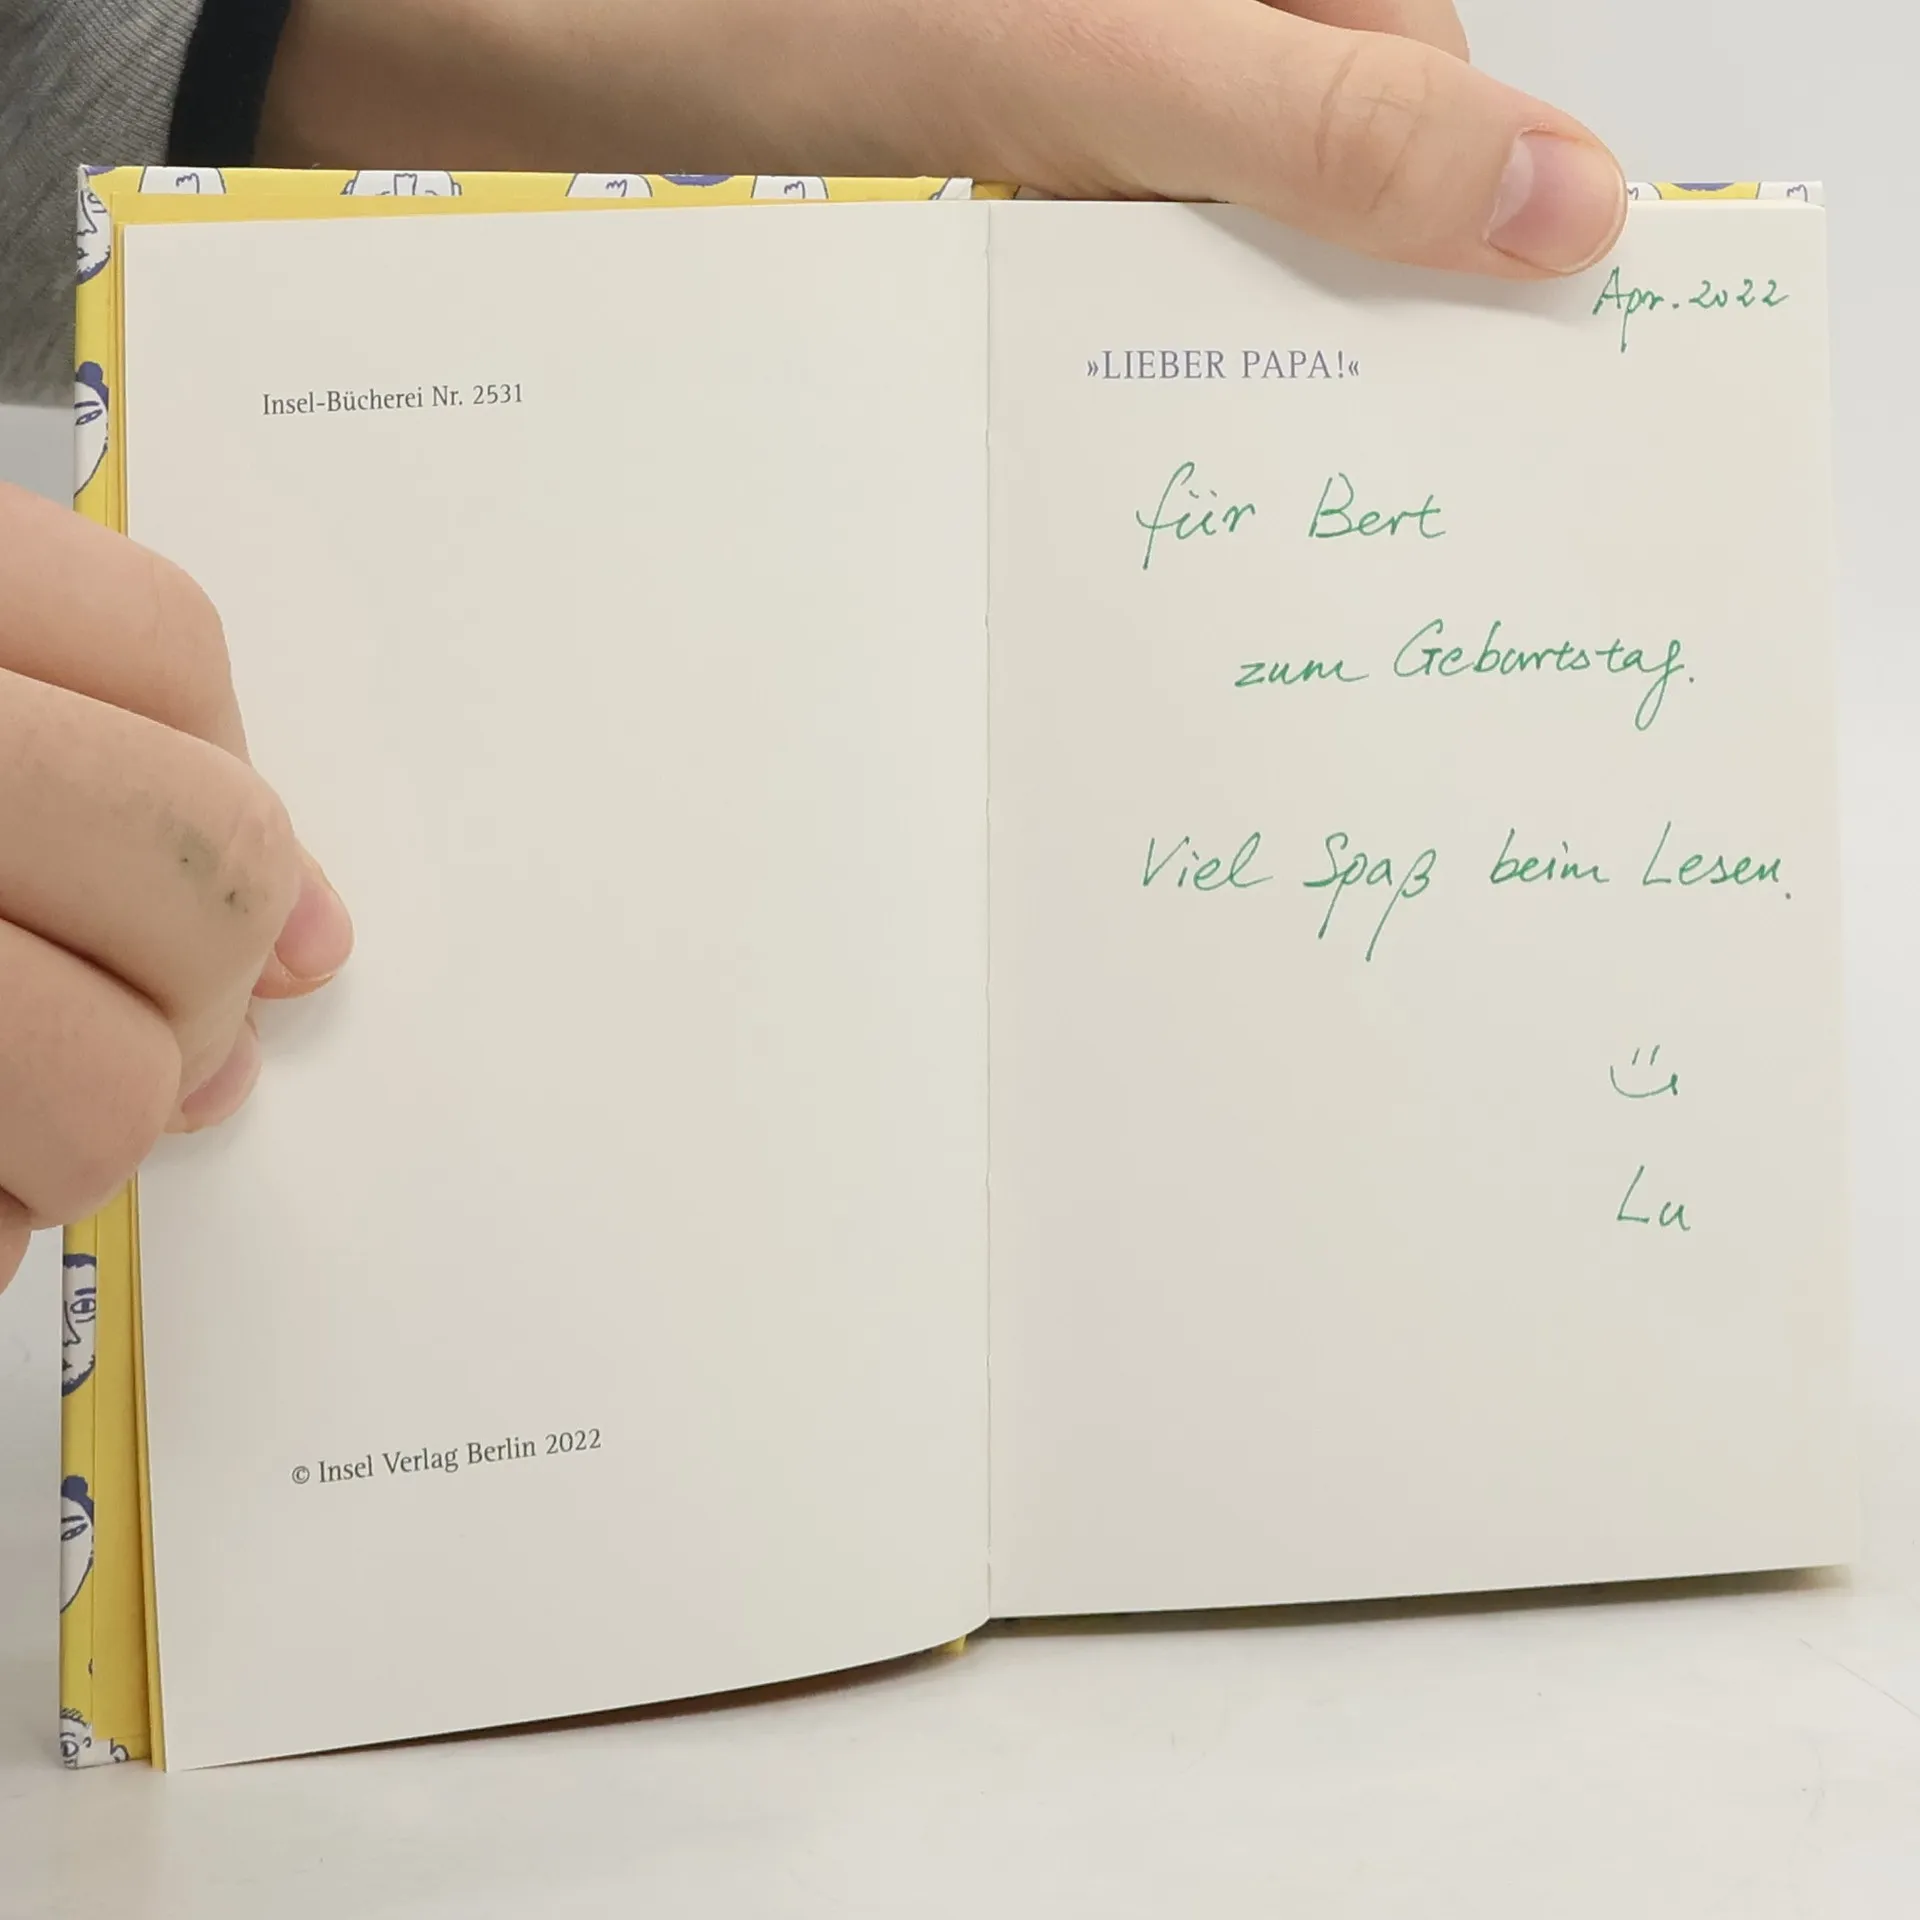 Insel-Bücherei Nr. 2531
© Insel Verlag Berlin 2022
Apr. 2022
»LIEBER PAPA!«
für Bert
zum Geburtstag.
Viel Spaß beim Lesen.
Lu